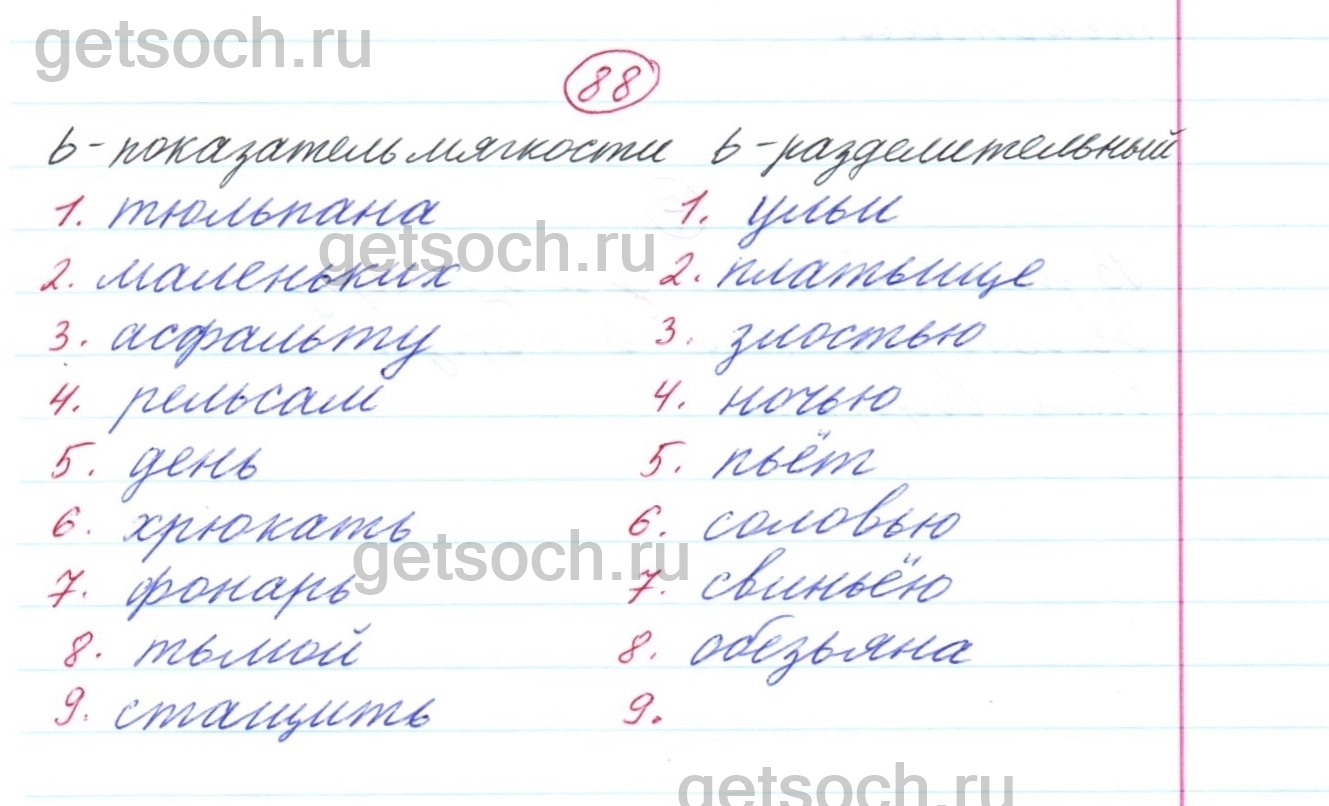 getsoch.ru
88
ь - показатель мягкости ь - разделительный
1. тюльпана 1. ульи
getsoch.ru
2. маленьких 2. платьице
3. асфальту 3. злостью
4. рельсам 4. ночью
5. день 5. пьёт
6. хрюкать 6. соловью
getsoch.ru
7. фонарь 7. свиньёю
8. тьмой 8. обезьяна
9. стащить 9.
getsoch.ru